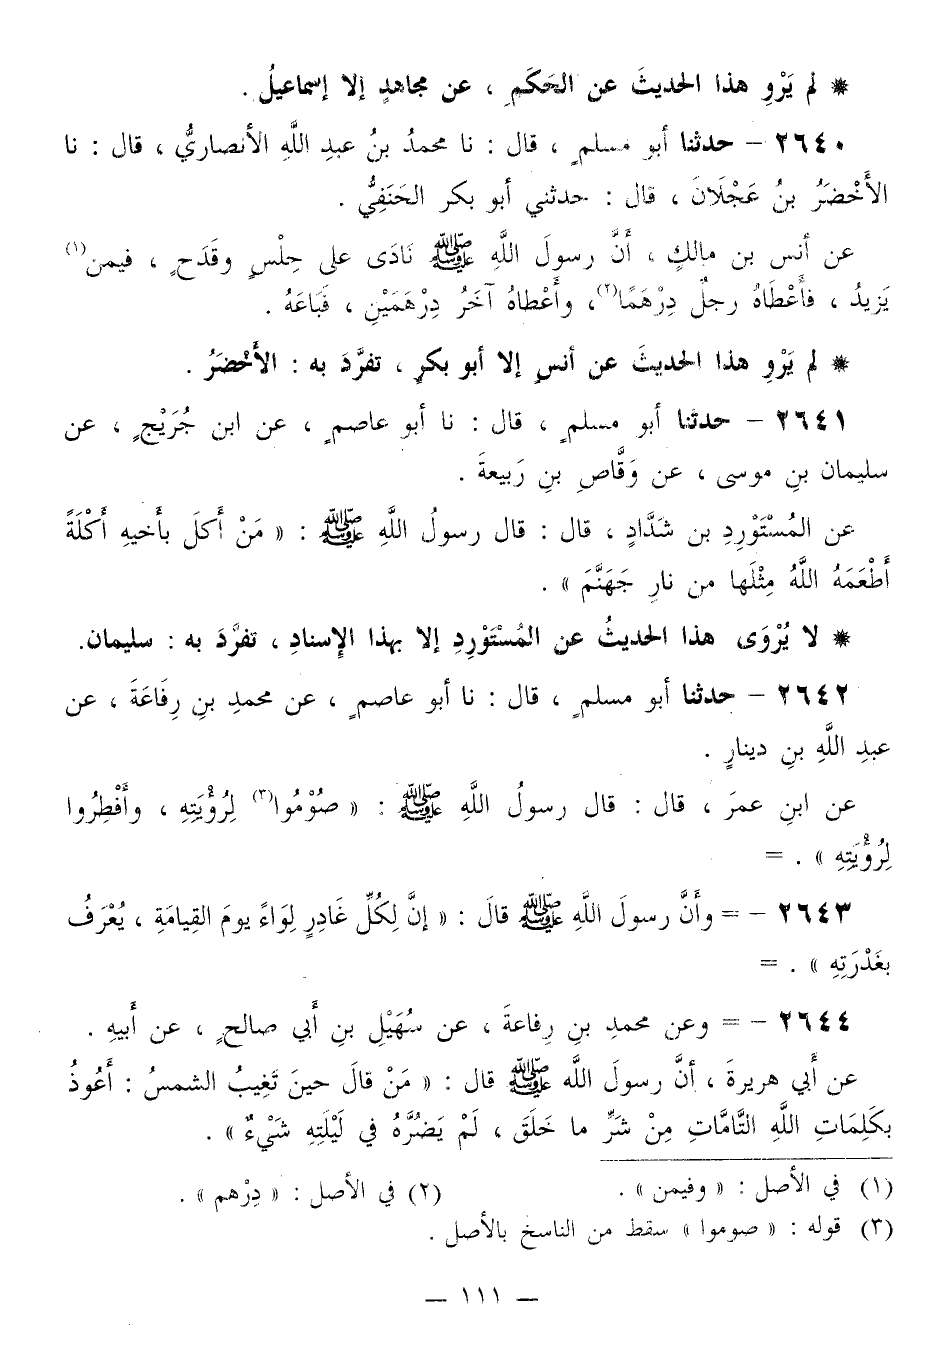 * لم يَرْوِ هذا الحديثَ عن الحَكَمِ ، عن مجاهدٍ إلا إسماعيلُ .
٢٦٤٠ – حدثنا أبو مسلمٍ ، قال : نا محمدُ بنُ عبدِ اللَّهِ الأنصاريُّ ، قال : نا
الأَخْضَرُ بنُ عَجْلَانَ ، قال : حدثني أبو بكر الحَنَفِيُّ .
عن أنس بن مالكٍ ، أَنَّ رسولَ اللَّهِ ﷺ نَادَى على حِلْسٍ وقَدَحٍ ، فيمن(١)
يَزيدُ ، فأَعْطَاهُ رجلٌ دِرْهَمًا(٢)، وأَعْطاهُ آخَرُ دِرْهَمَيْنِ ، فَبَاعَهُ .
* لم يَرْوِ هذا الحديثَ عن أنسٍ إلا أبو بكرٍ ، تفرَّدَ به : الأَخْضَرُ .
٢٦٤١ – حدثنا أبو مسلمٍ ، قال : نا أبو عاصمٍ ، عن ابن جُرَيْجٍ ، عن
سليمان بنِ موسى ، عن وَقَّاصِ بنِ رَبيعةَ .
عن المُسْتَوْرِدِ بن شَدَّادٍ ، قال : قال رسولُ اللَّهِ ﷺ : « مَنْ أَكلَ بأَخيهِ أَكْلَةً
أَطْعَمَهُ اللَّهُ مِثْلَها من نارِ جَهَنَّمَ » .
* لا يُرْوَى هذا الحديثُ عن المُسْتَوْرِدِ إلا بهذا الإِسنادِ ، تفرَّدَ به : سليمان.
٢٦٤٢ – حدثنا أبو مسلمٍ ، قال : نا أبو عاصمٍ ، عن محمدِ بنِ رِفَاعَةَ ، عن
عبدِ اللَّهِ بنِ دينارٍ .
عن ابنِ عمرَ ، قال : قال رسولُ اللَّهِ ﷺ : « صُوْمُوا(٣) لِرُؤْيَتِهِ ، وأَفْطِرُوا
لِرُؤْيَتِهِ » . =
٢٦٤٣ – = وأَنَّ رسولَ اللَّهِ ﷺ قالَ : « إنَّ لِكُلِّ غَادِرٍ لِوَاءً يومَ القِيامَةِ ، يُعْرَفُ
بغَدْرَتِهِ » . =
٢٦٤٤ – = وعن محمدِ بنِ رِفاعةَ ، عن سُهَيْلِ بنِ أَبي صالحٍ ، عن أَبيهِ .
عن أَبي هريرةَ ، أنَّ رسولَ اللَّه ﷺ قال : « مَنْ قالَ حينَ تَغِيبُ الشمسُ : أَعُوذُ
بكَلِمَاتِ اللَّهِ التَّامَّاتِ مِنْ شَرِّ ما خَلَقَ ، لَمْ يَضُرَّهُ في لَيْلَتِه شَيْءٌ » .
(١) في الأصل : « وفيمن » . (٢) في الأصل : « دِرْهم » .
(٣) قوله : « صوموا » سقط من الناسخ بالأصل .
– ١١١ –